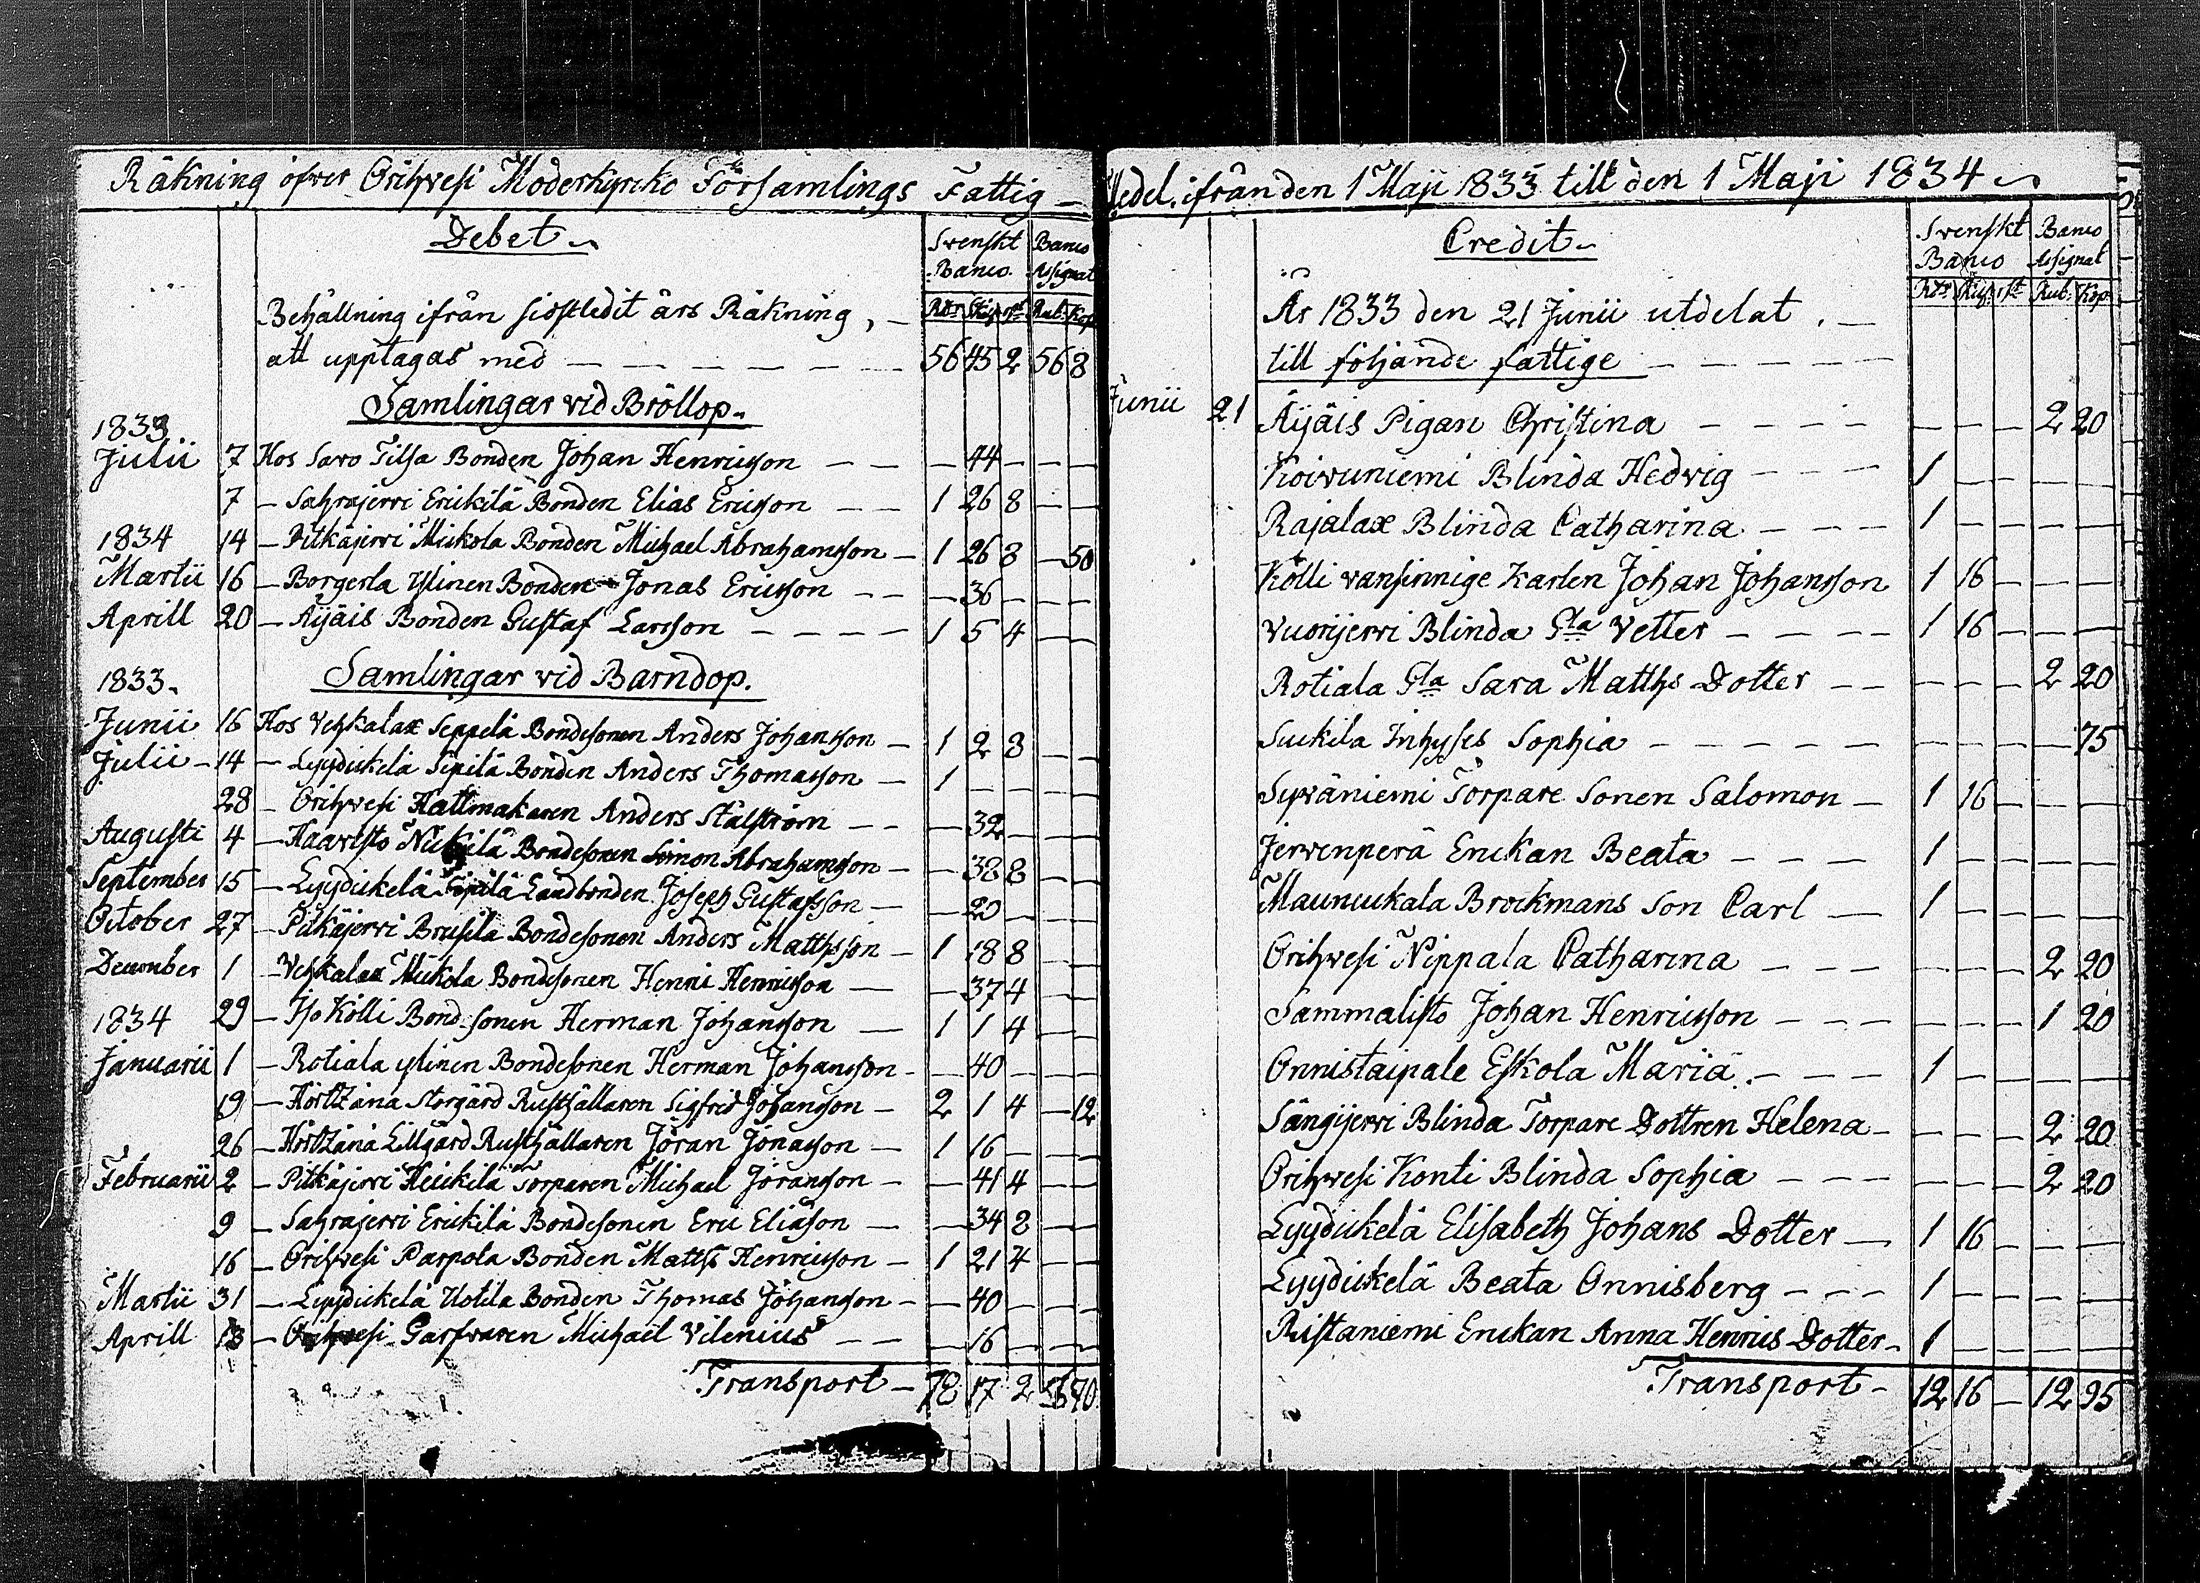 Räkning öfver Orihvesi Moderkyrko Församlings Fattig-
Debet
Svenskt Banco. Banco Assignat
Rdr Skip rst Rub: Kop
Behållning ifrån sidstledit års Räkning, —
att upptagas med — — — 56 45 2 56 8
Samlingar vid Bröllop.
1833
Julii 7 Hos Savo Tilsa Bonden Johan Henricsson — — — 44 — — —
7 — Sahrajervi Erickilä Bonden Elias Ericsson — — 1 26 8 — —
1834 14 — Pitkäjervi Mickola Bonden Michael Abrahamsson — 1 26 8 — 50
Martii 16 — Borgerla Ylinen Bonden Jonas Ericsson — — — 36 — — —
Aprill 20 — Äijäis Bonden Gustaf Larsson — — — — 1 5 4 — —
Samlingar vid Barndop.
1833.
Junii 16 Hos Vehkalax Seppelä Bondesonen Anders Johansson — 1 2 8 — —
Julii — 14 — Lyydickelä Sipilä Bonden Anders Thomasson — 1 — — — —
28 — Orihvesi Hattmakaren Anders Stålström — — — 32 — — —
Augusti 4 — Haavisto Nickilä Bondesonen Simon Abrahamsson — — 38 8 — —
September 15 — Lyydickelä Sipilä Landbonden Joseph Gustafsson — — 20 — — —
October 27 — Pitkäjervi Brusila Bondesonen Anders Matthsson — 1 18 8 — —
December 1 — Vehkalax Mickola Bondesonen Henric Henricsson — — 37 4 — —
1834 29 — Iso Kölli Bond.sonen Herman Johansson — 1 1 4 — —
Januarii 1 — Rotiala ylinen Bondesonen Herman Johansson — — 40 — — —
19 — Hörtzänä Storgård Rusthållaren Sigfrid Johansson — 2 1 4 — 12
26 — Hörtzänä Lillgård Rusthållaren Jöran Jonasson — 1 16 — — —
Februarii 2 — Pitkäjervi Heickilä Torparen Michael Jöransson — — 41 4 — —
9 — Sahrajervi Erickilä Bondesonen Eric Eliasson — — 34 8 — —
16 — Orihvesi Parpola Bonden Matths Henricsson — 1 21 4 — —
Martii 31 — Lyydickelä Uotila Bonden Thomas Johansson — — 40 — — —
Aprill 13 — Orihvesi Garfvaren Michael Vilenius — — — 16 — — —
Transport — 78 17 2 56 70
Medel, ifrån den 1 Maji 1833 till den 1 Maji 1834
Credit
Svenskt Banco Banco Assignat
Rdr Skip: rst Rub: Kop
År 1833 den 21 Junii utdelat, —
till följande fattige — — — —
Junii 21 Äijäis Pigan Christina — — — — — — — 2 20
Koivuniemi Blinda Hedvig — — — 1 — — — —
Rajalax Blinda Catharina — — — 1 — — — —
Kölli vansinnige Karlen Johan Johansson 1 16 — — —
Vuorijervi Blinda Gla Vetter — — — — 1 16 — — —
Rotiala Gla Sara Matths Dotter — — — — — 2 20
Suckila Inhyses Sophia — — — — — — — — — — 75
Syväniemi Torpare Sonen Salomon — 1 16 — — —
Jervenperä Enckan Beata — — — 1 — — — —
Maunuckala Brockmans Son Carl — 1 — — — —
Orihvesi Nippala Catharina — — — — — — 2 20
Sammalisto Johan Henricsson — — — — — — 1 20
Onnistaipale Eskola Maria. — — — 1 — — — —
Sängijervi Blinda Torpare Dottren Helena — — — — 2 20
Orihvesi Konti Blinda Sophia — — — — — — 2 20
Lyydickelä Elisabeth Johans Dotter — 1 16 — — —
Lyydickelä Beata Onnisberg — — — 1 — — — —
Ristaniemi Enckan Anna Henrics Dotter — 1 — — — —
Transport — 12 16 — 12 95